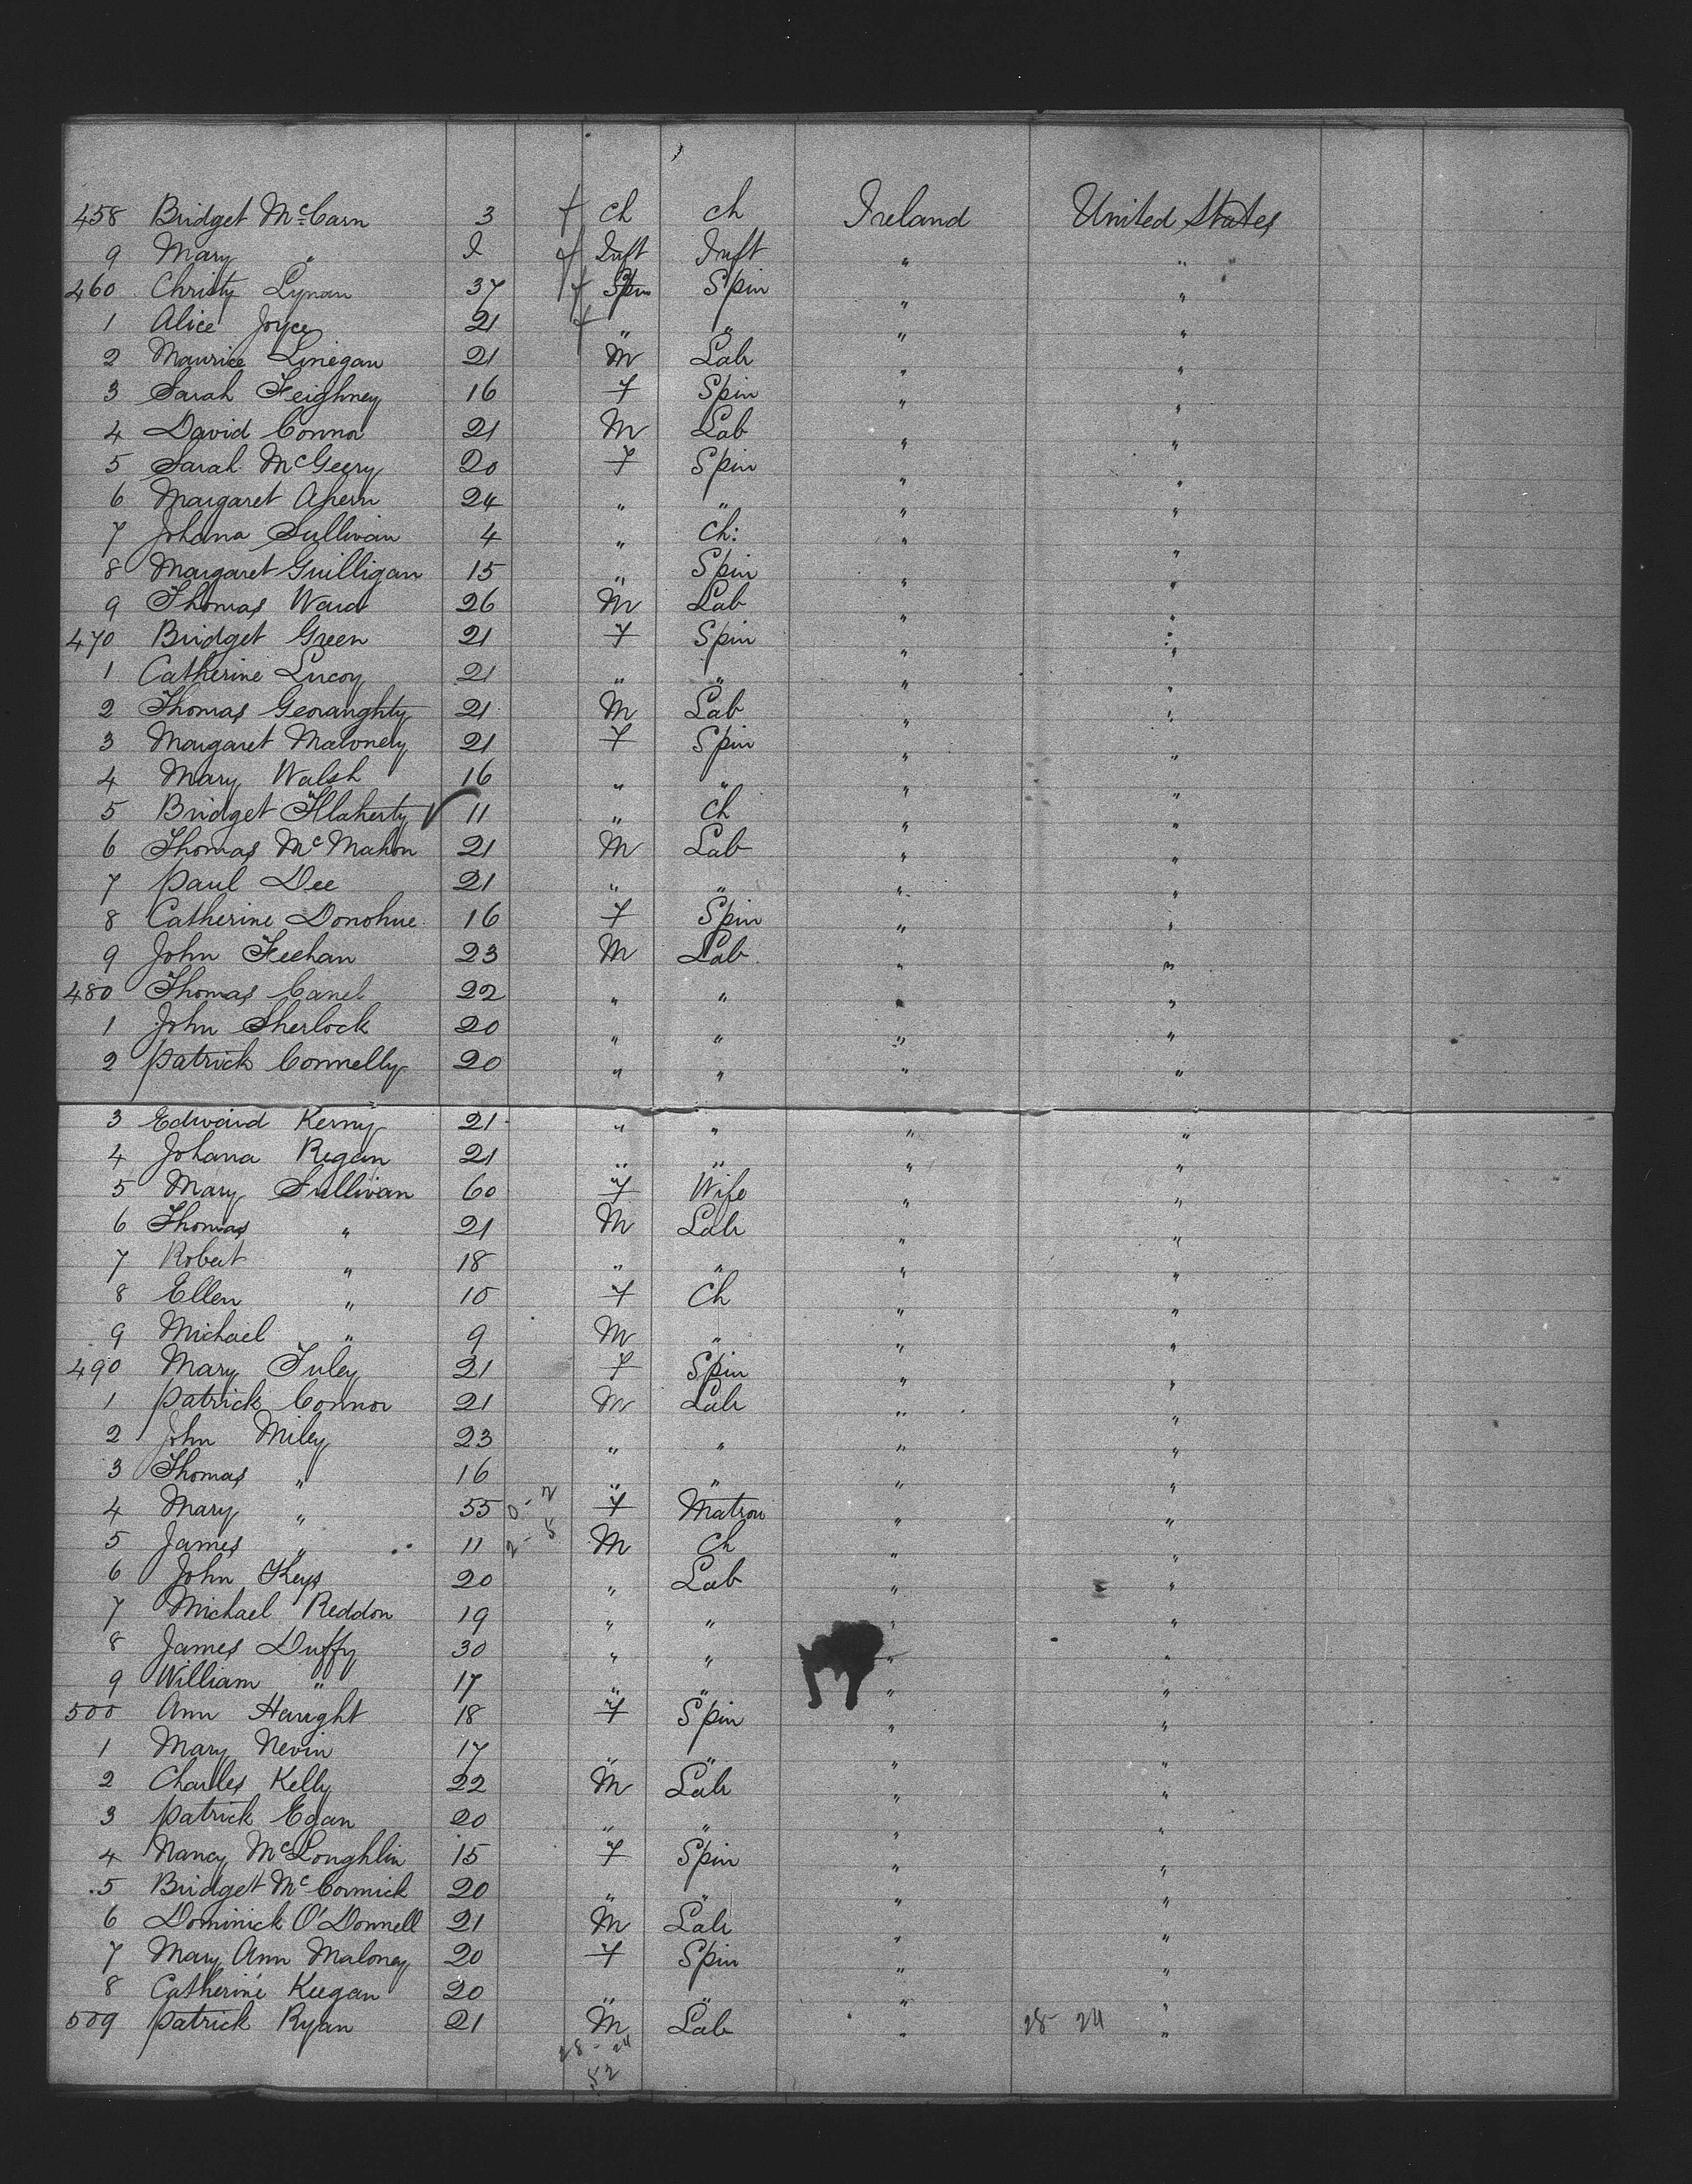 458 Bridget McCarn 3 f Ch Ch Ireland United States
9 Mary " f Inft Inft " " "
460 Christy Lynan 37 f Spin Spin " "
1 Alice Joyce 21 f " " " "
2 Maurice Linegan 21 M Lab " "
3 Sarah Feighney 16 F Spin " "
4 David Connor 21 M Lab " "
5 Sarah McGeery 20 F Spin " "
6 Margaret Ahern 24 " " " "
7 Johana Sullivan 4 " Ch: " "
8 Margaret Guilligan 15 " Spin " "
9 Thomas Ward 26 M Lab " "
470 Bridget Green 21 F Spin " "
1 Catherine Lucoy 21 " " " "
2 Thomas Georaughty 21 M Lab " "
3 Margaret Maloney 21 F Spin " "
4 Mary Walsh 16 " " " "
5 Bridget Flaherty ✓ 11 " Ch " "
6 Thomas McMahon 21 M Lab " "
7 Paul Dee 21 " " " "
8 Catherine Donohue 16 F Spin " "
9 John Feehan 23 M Lab " "
480 Thomas Canel 22 " " " "
1 John Sherlock 20 " " " "
2 Patrick Connelly 20 " " " "
3 Edward Kerny 21 " " " "
4 Johana Regan 21 " " " "
5 Mary Sullivan 60 F Wife " "
6 Thomas " 21 M Lab " "
7 Robert " 18 " " " "
8 Ellen " 10 F Ch " "
9 Michael " 9 M " " "
490 Mary Tuley 21 F Spin " "
1 Patrick Connor 21 M Lab " "
2 John Miley 23 " " " "
3 Thomas " 16 " " " "
4 Mary " 55 F Matron " "
5 James " 11 M Ch " "
6 John Keys 20 " Lab " "
7 Michael Reddon 19 " " " "
8 James Duffy 30 " " " "
9 William " 17 " " " "
500 Ann Haught 18 F Spin " "
1 Mary Nevin 17 " " " "
2 Charles Kelly 22 M Lab " "
3 Patrick Egan 20 " " " "
4 Nancy McLoughlin 15 F Spin " "
5 Bridget McCormick 20 " " " "
6 Dominick O'Donnell 21 M Lab " "
7 Mary Ann Maloney 20 F Spin " "
8 Catherine Keegan 20 " " " "
509 Patrick Ryan 21 M Lab " 28 24 "
28 - 24
52